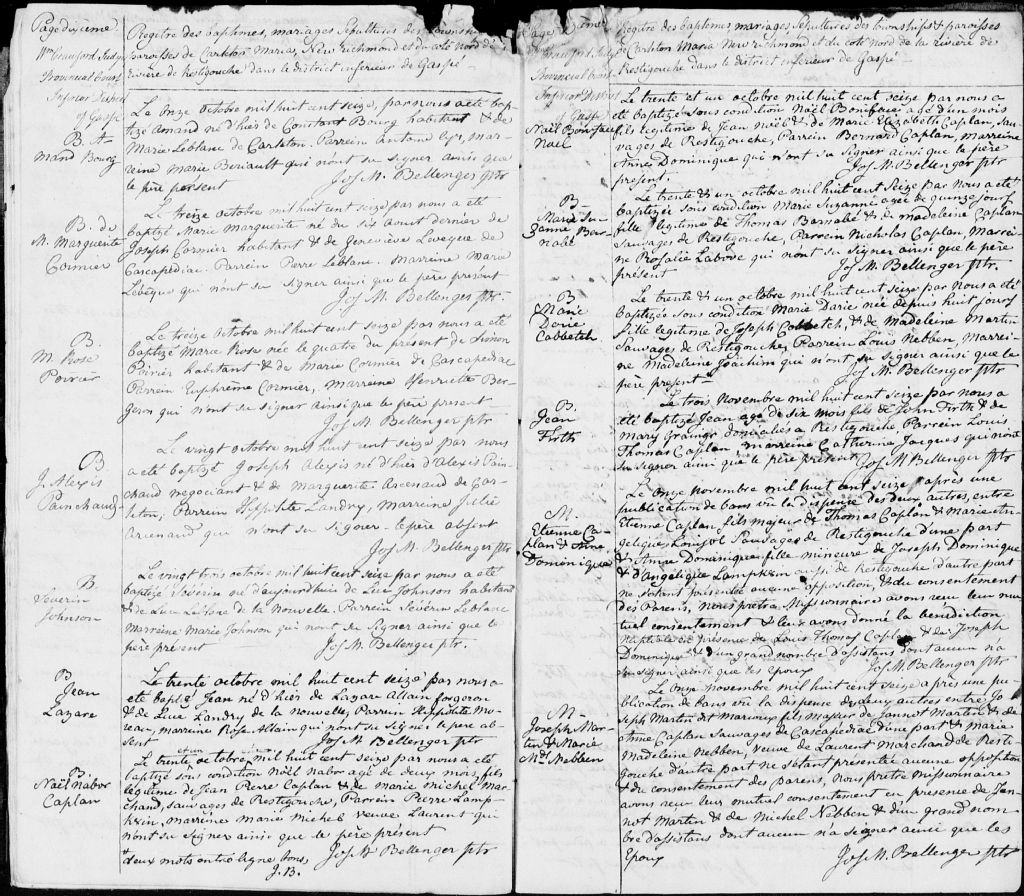 Page dixieme
Wm Crawford Judge
Provincial Court
Inferior District
of Gaspé
Registre des baptêmes, mariages, sépultures des townships
paroisses de Carleton Maria, New richmond et du coté Nord de la
Rivière de Restigouche dans le district inferieur de Gaspé
B. A-
mand Bourg
Le Onze octobre mil huit cent seize, par nous a eté bap
tizé Amand né d'hier de Constant Bourg habitant & de
Marie Leblanc de Carleton. Parrein Antoine mar-
reine Marie Beriault qui n'ont su signer ainsi que
le père present
Jos M. Bellenger ptr
B. de
M. Marguerite
Cormier
Le treize octobre mil huit cent seize par nous a eté
baptizé Marie Marguerite né du six aout dernier de
Joseph Cormier habitant & de Geneviève Leveque de
Cascapediac. Parrein Pierre Leblanc. Marreine Marie
Levêque qui n'ont su signer ainsi que le père present
Jos M. Bellenger ptr.
B.
M. Rose
Poirier
Le treize octobre mil huit cent seize par nous a eté
baptizé Marie Rose née le quatre du present de Simon
Poirier habitant & de Marie Cormier de Cascapediac
Parrein Euphrême Cormier, Marreine Henriette Ber-
geron qui n'ont su signer ainsi que le père present
Jos M. Bellenger ptr
B
J. Alexis
Painchaud
Le vingt octobre mil huit cent seize par nous
a eté baptizé Joseph Alexis né d'hier d'Alexis Pain-
chaud negociant & de Marguerite Arcenaud de Car-
leton; Parrein Hippolite Landry, Marreine Julie
Arcenaud qui n'ont su signer. le père absent
Jos M. Bellenger ptr
B
Séverin
Johnson
Le vingt trois octobre mil huit cent seize par nous a eté
baptizé Severin né d'aujourdhui de Luc Johnson habitant
& de Luce de la Nouvelle. Parrein Séverin Leblanc
Marreine Marie Johnson qui n'ont su signer ainsi que le
père present
Jos M. Bellenger ptr.
B
Jean
Lazare
Le trente octobre mil huit cent seize par nous a
eté baptizé Jean né d'hier de Lazare Allain forgeron
& de Luce Landry de la nouvelle, Parrein Hippolite Mo-
reau, marreine Rose Allain qui n'ont su signer le père ab-
sent
Jos M. Bellenger ptr
B
Noël Nabor
Caplan
et un
Le trente octobre mil huit cent seize par nous a eté
baptizé sous condition Noël Nabor agé de deux mois fils
légitime de Jean Pierre Caplan & de Marie Michel Mar-
chand, sauvages de Restigouche, Parrein Pierre Lamp-
kin, marreine Marie Michel veuve Laurent qui
n'ont su signer ainsi que le père present
Jos M. Bellenger ptr
deux mots entre ligne bons
J. B.
Provincial Court
Inferior District
of Gaspé
Registre des baptêmes mariages, Sépultures des townships & paroisses
Carleton Maria New richmond et du coté Nord de la rivière de
Restigouche dans le district inferieur de Gaspé
Noël Boniface
Noël
Le trente et un octobre mil huit cent seize par nous a
eté baptizé sous condition Noël Boniface agé d'un mois
fils légitime de Jean Noël & de Marie Elizabeth Caplan, Sau-
vages de Restigouche, Parrein Bernard Caplan, marreine
Anne Dominique qui n'ont su signer ainsi que le père
present.
Jos M. Bellenger ptr
B
Marie Su-
zanne Bar-
nabé
Le trente & un octobre mil huit cent seize par nous a eté
baptizée sous condition Marie Suzanne agée de quinze jours
fille legitime de Thomas Barnabé & de madeleine Caplan
Sauvages de Restigouche, Parrein Nicholas Caplan, Marrei-
ne Rosalie Labove qui n'ont su Signer ainsi que le père
présent
Jos M. Bellenger ptr.
B
Marie
Darie
Cabbetch
Le trente & un octobre mil huit cent seize par Nous a eté
baptizée sous condition Marie Darie née depuis huit jours
fille legitime de Joseph Cabbetch, & de Madeleine Martin
Sauvages de Restigouche, Parrein Louis Nebben, Marrei-
ne Madeleine Joachim qui n'ont su signer ainsi que le
père present
Jos M. Bellenger ptr
B
Jean
Firth
Le trois Novembre mil huit cent seize par nous a
eté baptizé Jean agé de six mois fils de John Firth & de
Mary Grainger domiciliés a Restigouche, Parrein Louis
Thomas Caplan, marreine Catherine Jacques qui n'ont
su signer ainsi que le père présent
Jos M Bellenger ptr
M
Etienne Ca-
plan & Anne
Dominique
Le Onze Novembre mil huit cent seize, après une
publication de bans vû la dispense des deux autres, entre
Etienne Caplan fils majeur de Thomas Caplan & Marie An-
gelique Sauvages de Restigouche d'une part
& Anne Dominique fille mineure de Joseph Dominique
& d'Angelique Lampkin aussi de Restigouche d'autre part
ne s'etant presentée aucune opposition, & du consentement
des Parens, Nous prêtre Missionnaire avons reçu leur mu-
tuel consentement & leur avons donné la benediction
Nuptiale en présence de Louis Thomas Caplan & de Joseph
Dominique & d'un grand nombre d'assistans dont aucun n'a
su signer ainsi que les Epoux
Jos M. Bellenger ptr
M
Joseph Mar-
tin & Marie
Mad. Nebben
Le Onze novembre mil huit cent seize après une pu-
blication de bans vû la dispense de deux autres entre Jo-
seph Martin fils majeur de Jannot Martin & de
Anne Caplan Sauvages de Cascapediac d'une part & marie
Madeleine Nebben, veuve de Laurent Marchand de Resti-
gouche d'autre part ne s'étant presentée aucune opposition
& du consentement des parens, nous prêtre missionnaire
avons reçu leur mutuel consentement en presence de Jan-
not Martin & de Michel Nebben & d'un grand nom-
bre d'assistans dont aucun n'a su signer ainsi que les
Epoux
Jos M. Bellenger ptr